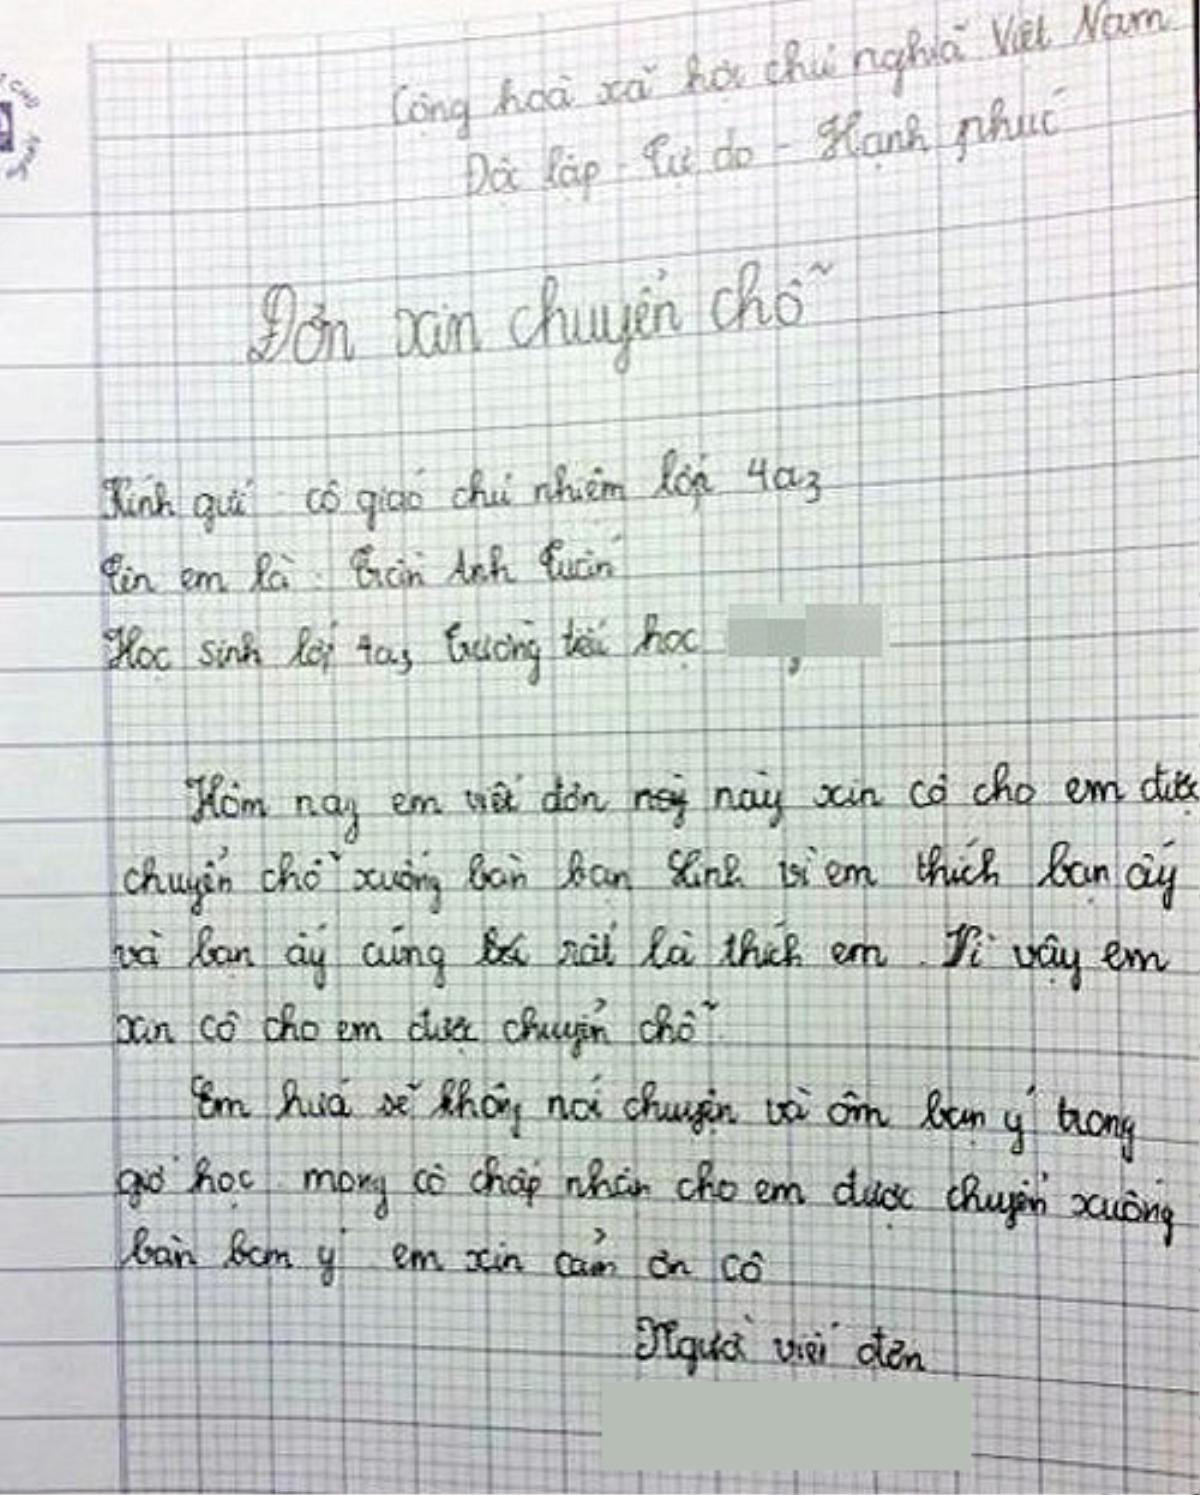 Cộng hoà xã hội chủ nghĩa Việt Nam
Độc lập - Tự do - Hạnh phúc
Đơn xin chuyển chỗ
Kính gửi cô giáo chủ nhiệm lớp 4a3
Tên em là : Trần Anh Tuấn
Học sinh lớp 4a3 trường tiểu học
Hôm nay em viết đơn này xin cô cho em được
chuyển chỗ xuống bàn bạn Linh vì em thích bạn ấy
và bạn ấy cũng rất là thích em. Vì vậy em
xin cô cho em được chuyển chỗ.
Em hứa sẽ không nói chuyện và ôm bạn ý trong
giờ học. mong cô chấp nhân cho em được chuyển xuống
bàn bạn ý em xin cảm ơn cô
Người viết đơn